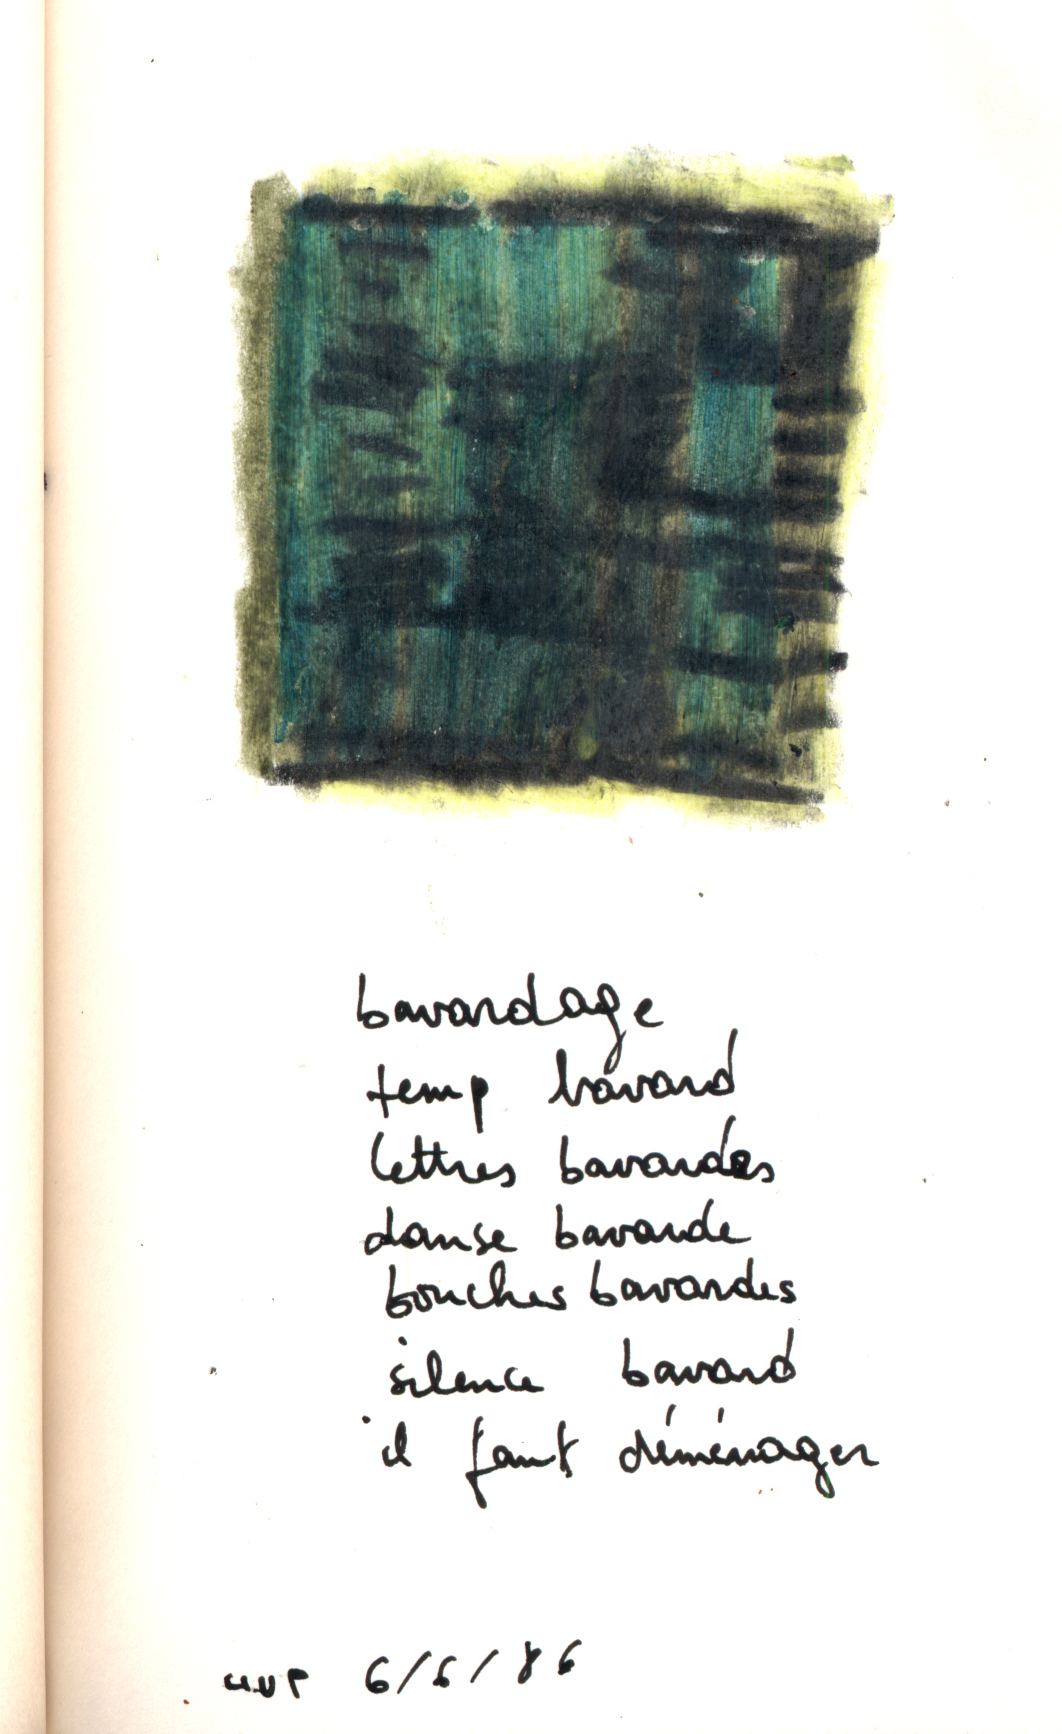 bavardage
temp bavard
lettres bavardes
danse bavarde
bouches bavardes
silence bavard
il faut déménager
6/6/86